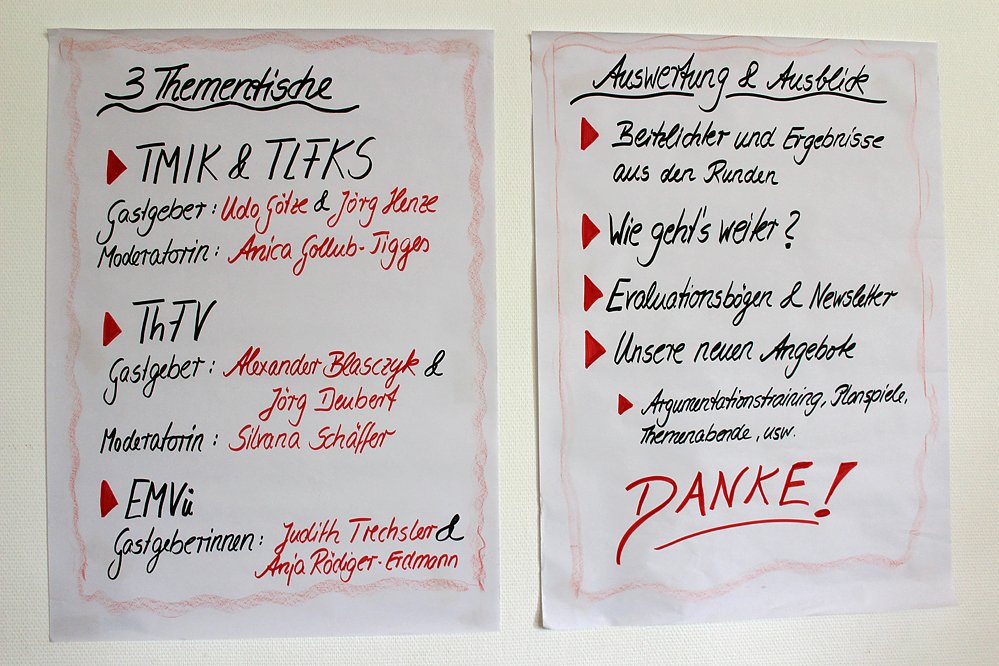 3 Thementische
TMIK & TLFKS
Gastgeber: Udo Götze & Jörg Henze
Moderatorin: Anica Gollub-Tigges
ThFV
Gastgeber: Alexander Blasczyk &
Jörg Deubert
Moderatorin: Silvana Schäffer
EMVü
Gastgeberinnen: Judith Trechsler &
Anja Rödiger-Erdmann
Auswertung & Ausblick
Beitzlichter und Ergebnisse
aus den Runden
Wie geht's weiter?
Evaluationsbögen & Newsletter
Unsere neuen Angebote
Argumentationstraining, Planspiele,
Themenabende, usw.
DANKE!